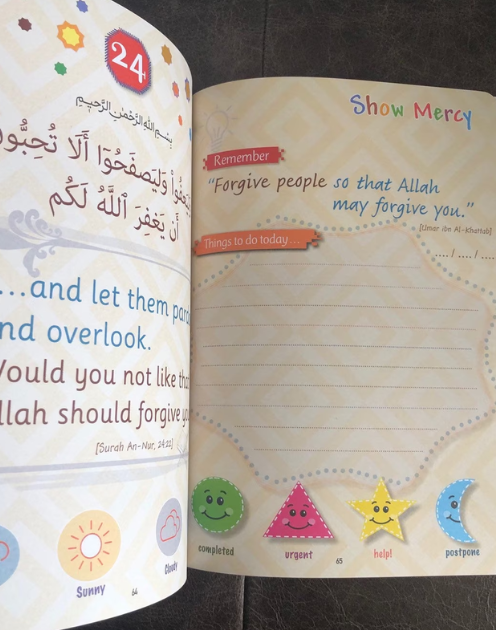 24
بِسْمِ اللهِ الرَّحْمٰنِ الرَّحِيمِ
وَلْيَصْفَحُوا أَلَا تُحِبُّون
أَن يَغْفِرَ اللَّهُ لَكُم
...and let them pard
nd overlook.
ould you not like tha
llah should forgive yo
[Surah An-Nur, 24:22]
Sunny
Cloudy
64
Show Mercy
Remember
"Forgive people so that Allah
may forgive you."
[Umar ibn Al-Khattab]
.... / .... / ....
Things to do today....
completed
urgent
help!
postpone
65